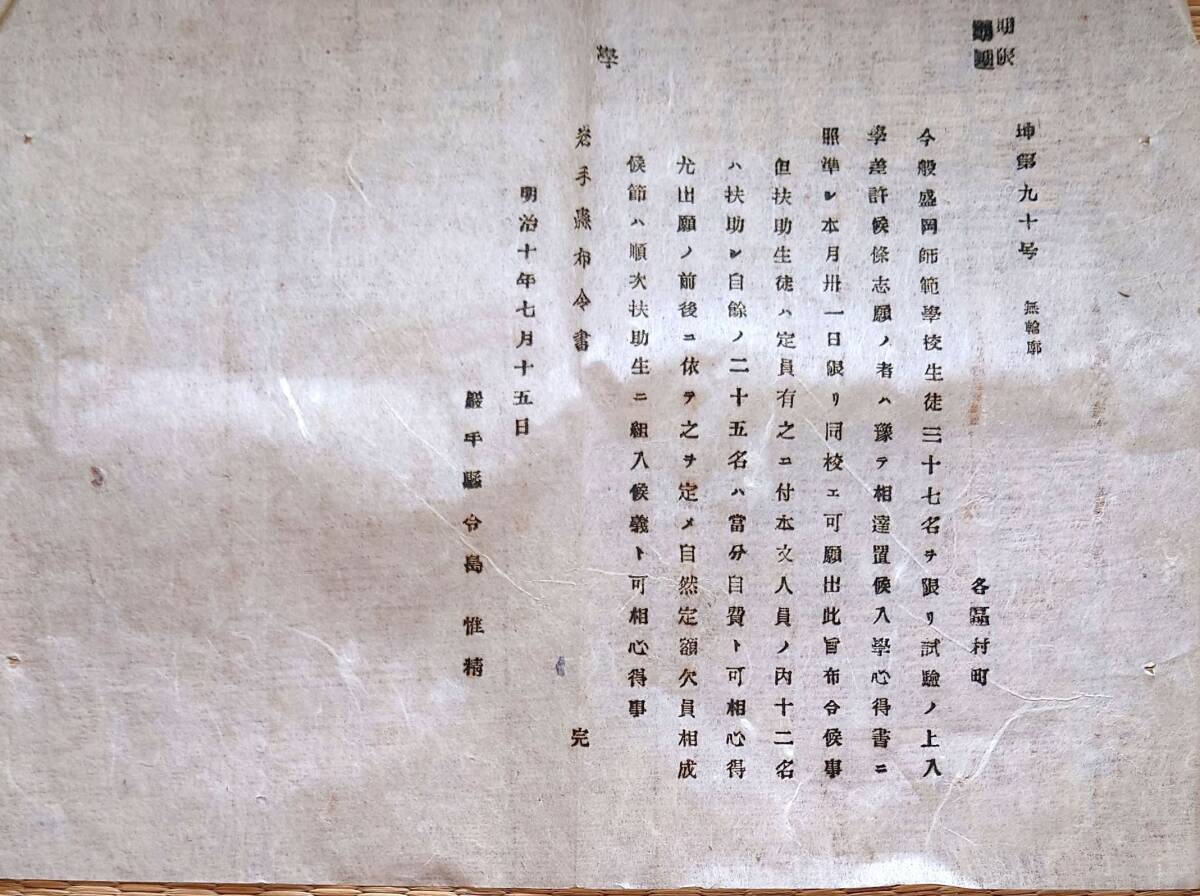 坤第九十号　無輪廓
各區村町
今般盛岡師範學校生徒三十七名ヲ限リ試驗ノ上入
學差許候條志願ノ者ハ豫テ相達置候入學心得書ニ
照準シ本月卅一日限リ同校エ可願出此旨布令候事
但扶助生徒ハ定員有之ニ付本文人員ノ内十二名
ハ扶助シ自餘ノ二十五名ハ當分自費ト可相心得
尤出願ノ前後ニ依テ之ヲ定メ自然定額欠員相成
候節ハ順次扶助生ニ組入候義ト可相心得事
學
岩手縣布令書　完
明治十年七月十五日
巖手縣令島　惟精